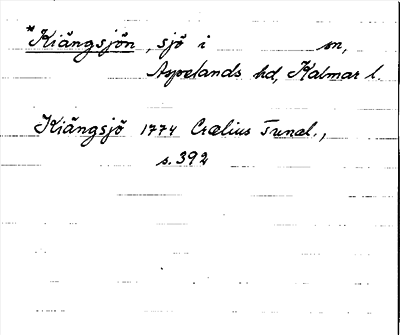 *Kiängsjön, sjö i sn,
Aspelands hd, Kalmar l.
Kiängsjö 1774 Crælius Tunal.,
s. 392